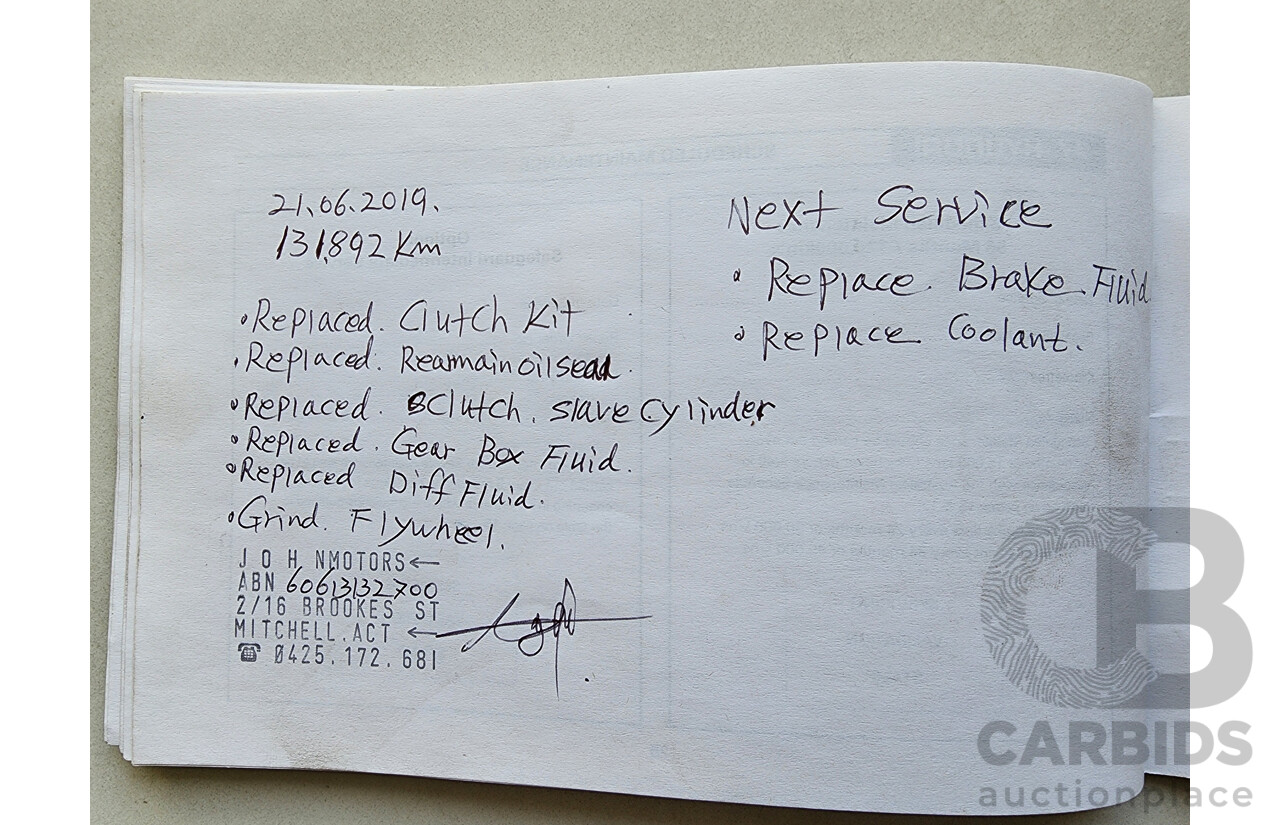 21.06.2019.
131,892 Km
• Replaced. Clutch Kit
• Replaced. Rearmain oil seal.
• Replaced. Clutch. slave cylinder
• Replaced. Gear Box Fluid.
• Replaced Diff Fluid.
• Grind. Flywheel.
J O H NMOTORS←
ABN 60613132700
2/16 BROOKES ST
MITCHELL.ACT ←
☎ 0425.172.681
Next Service
• Replace. Brake Fluid
• Replace Coolant.
SCHEDULED MAINTENANCE
CARBIDS
auctionplace